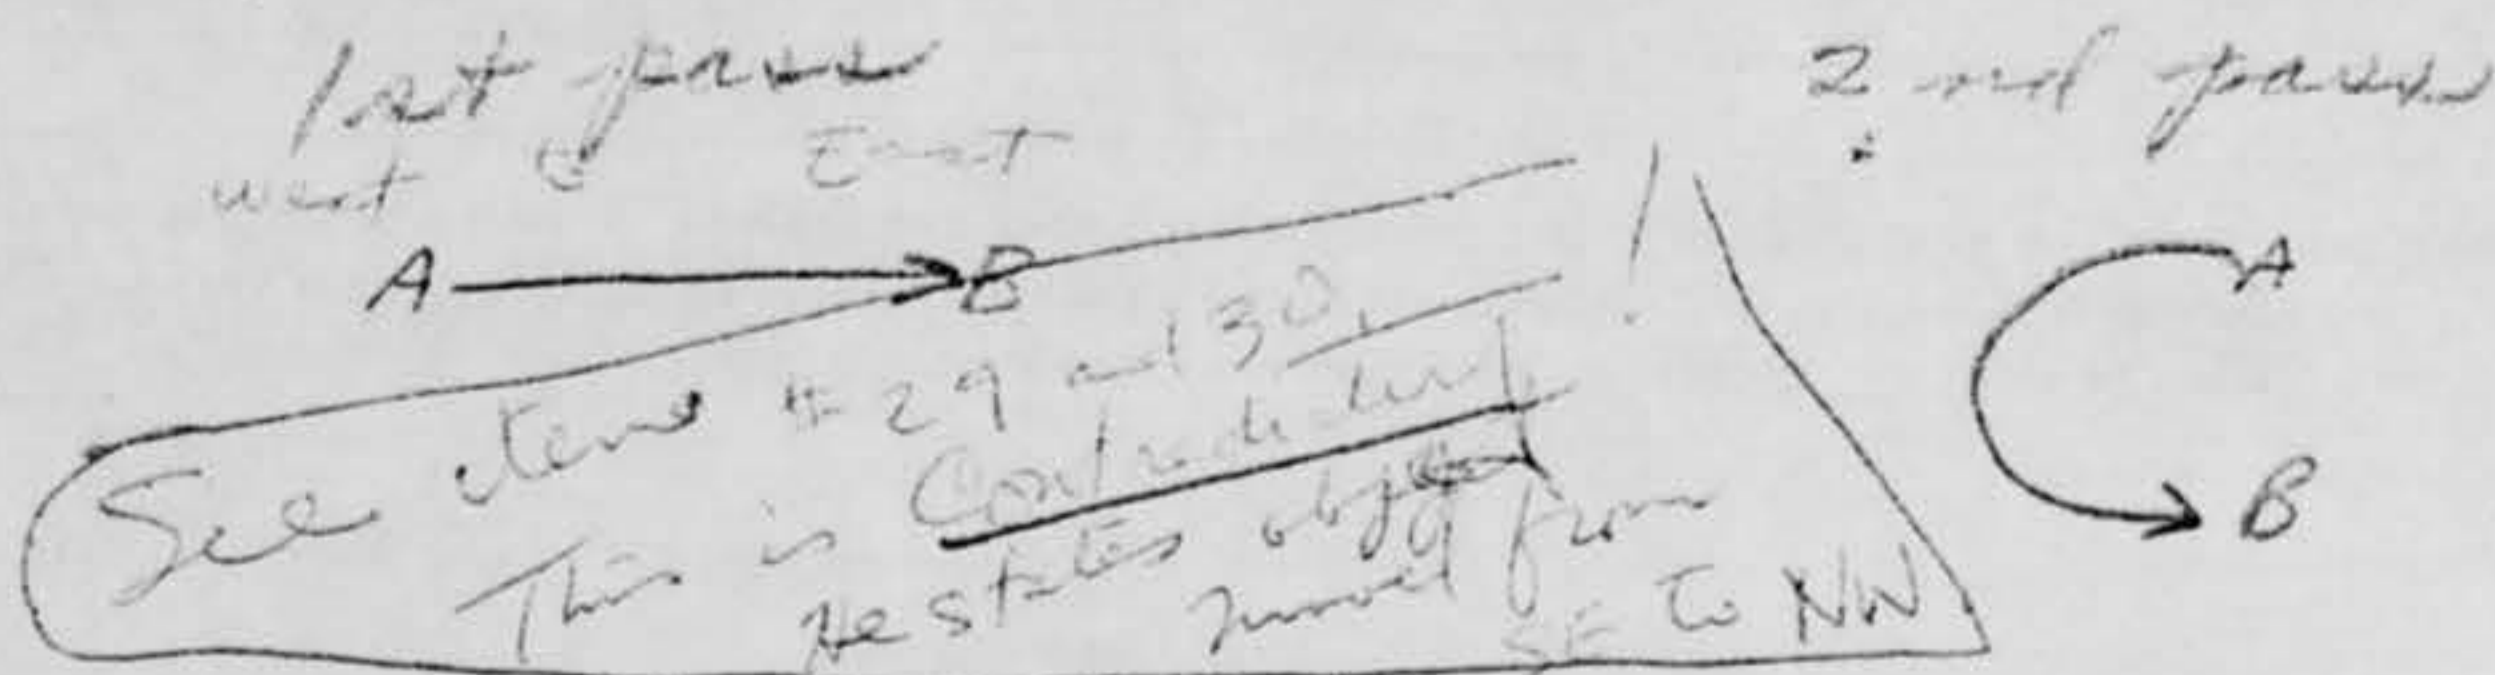 1st pass
2nd pass
West to East
A B
A
B
See items # 29 and 30,
This is Contradictory!
He states object
moved from
SE to NW